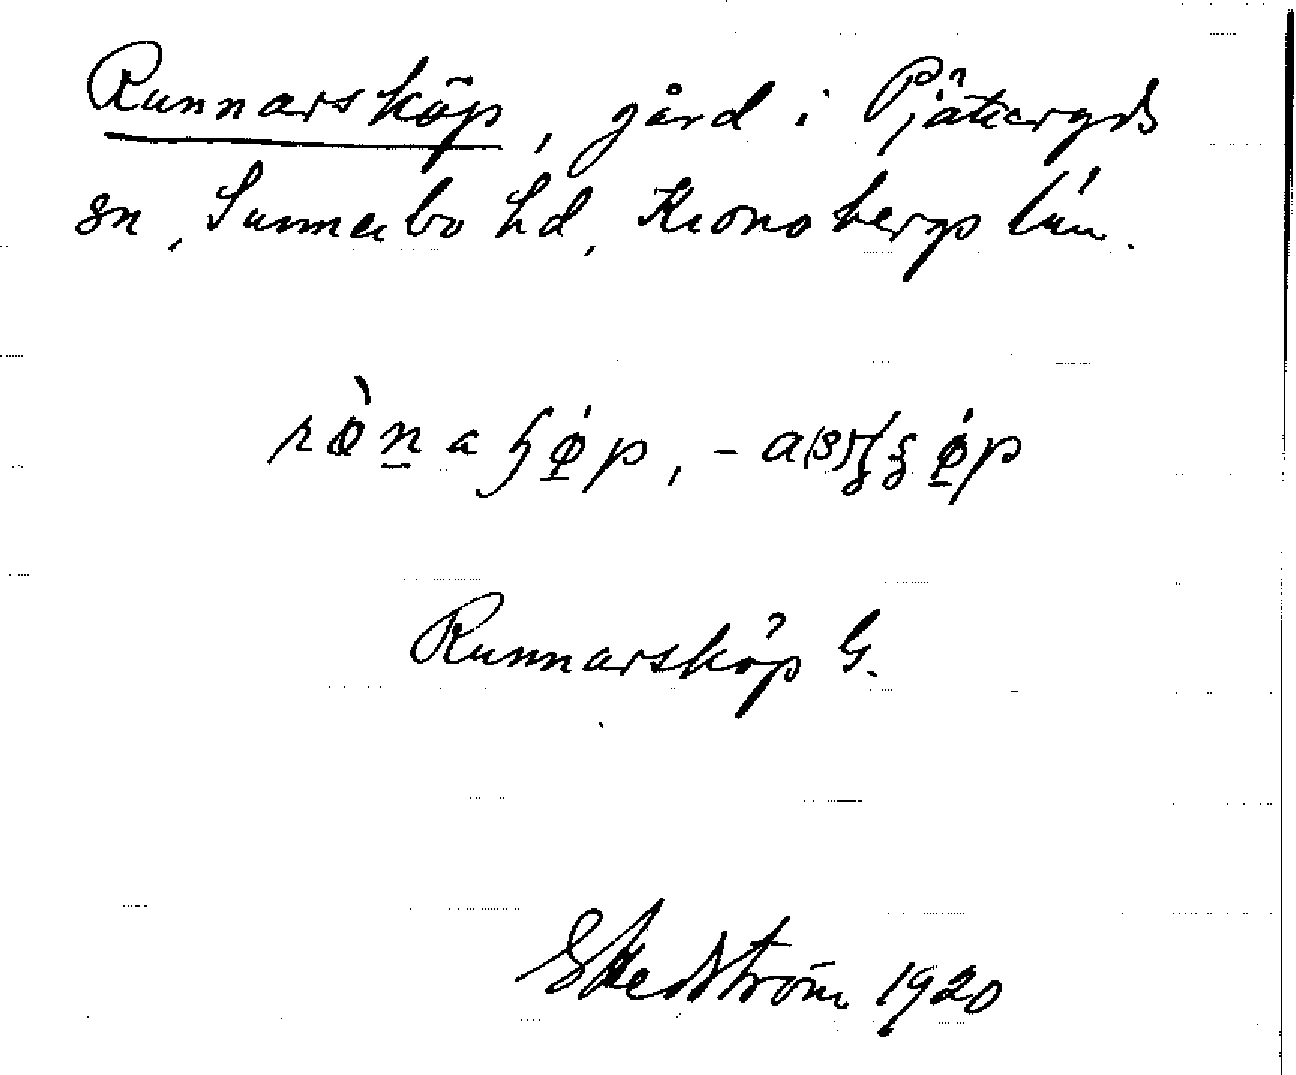 Runnarsköp, gård i Pjätteryds
sn, Sunnerbo hd, Kronobergs län.
Runnarsköp G.
G Hedström 1920